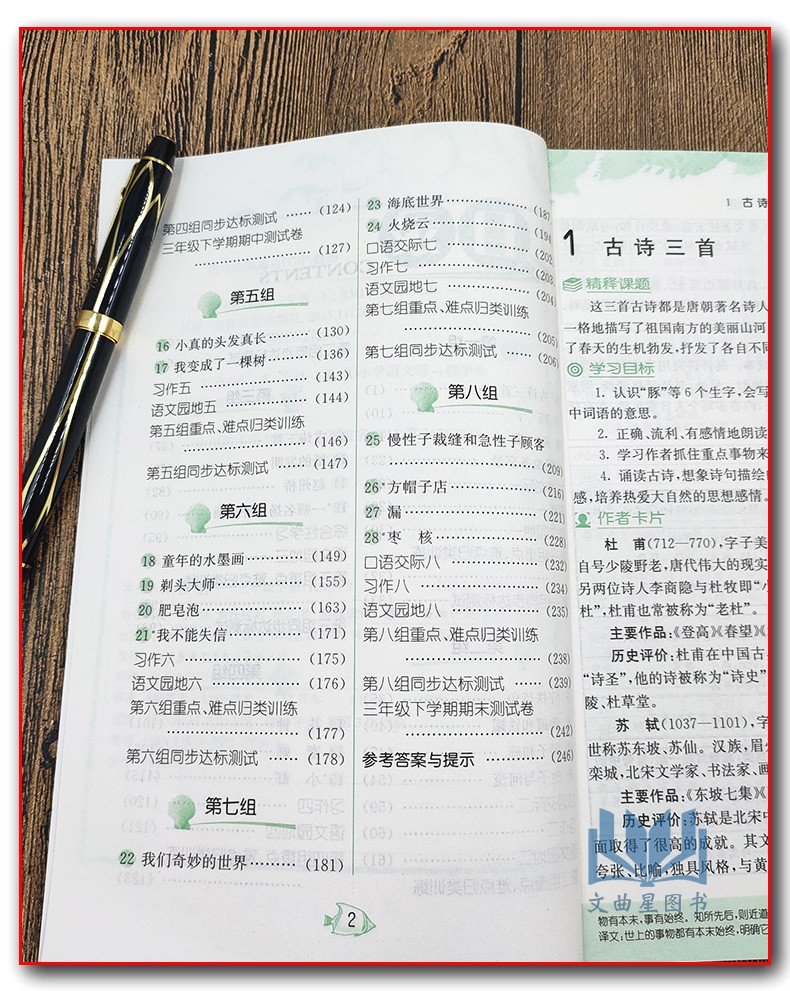 第四组同步达标测试 …… (124)
三年级下学期期中测试卷
…………………… (127)
第五组
16 小真的头发真长 ……… (130)
17 我变成了一棵树 ……… (136)
习作五 …………………… (143)
语文园地五 ……………… (144)
第五组重点、难点归类训练
…………………… (146)
第五组同步达标测试 …… (147)
第六组
18 童年的水墨画 ………… (149)
19 剃头大师 ……………… (155)
20 肥皂泡 ………………… (163)
21* 我不能失信 …………… (171)
习作六 …………………… (175)
语文园地六 ……………… (176)
第六组重点、难点归类训练
…………………… (177)
第六组同步达标测试 …… (178)
第七组
22 我们奇妙的世界 ……… (181)
23 海底世界 ……………… (187
24 火烧云 ………………… (194
口语交际七 ……………… (202
习作七 …………………… (203
语文园地七 ……………… (204)
第七组重点、难点归类训练
…………………… (205)
第七组同步达标测试 …… (206)
第八组
25 慢性子裁缝和急性子顾客
…………………… (209)
26* 方帽子店 ……………… (216)
27 漏 ……………………… (221)
28* 枣 核 ………………… (228)
口语交际八 ……………… (232)
习作八 …………………… (234)
语文园地八 ……………… (235)
第八组重点、难点归类训练
…………………… (238)
第八组同步达标测试 …… (239)
三年级下学期期末测试卷
…………………… (242)
参考答案与提示 ………… (246)
2
1 古诗
1 古诗三首
精释课题
这三首古诗都是唐朝著名诗人
一格地描写了祖国南方的美丽山河
了春天的生机勃发,抒发了各自不同
学习目标
1. 认识“豚”等6个生字,会写
中词语的意思。
2. 正确、流利、有感情地朗读
3. 学习作者抓住重点事物来
4. 诵读古诗,想象诗句描绘的
感,培养热爱大自然的思想感情。
作者卡片
杜 甫(712—770),字子美
自号少陵野老,唐代伟大的现实
另两位诗人李商隐与杜牧即“小
杜”,杜甫也常被称为“老杜”。
主要作品:《登高》《春望》《
历史评价:杜甫在中国古
“诗圣”,他的诗被称为“诗史”
陵、杜草堂。
苏 轼(1037—1101),字
世称苏东坡、苏仙。汉族,眉州
栾城,北宋文学家、书法家、画
主要作品:《东坡七集》《
历史评价:苏轼是北宋中
面取得了很高的成就。其文
夸张、比喻,独具风格,与黄
文曲星图书
物有本末,事有始终。知所先后,则近道
译文:世上的事物都有本末始终,明确它